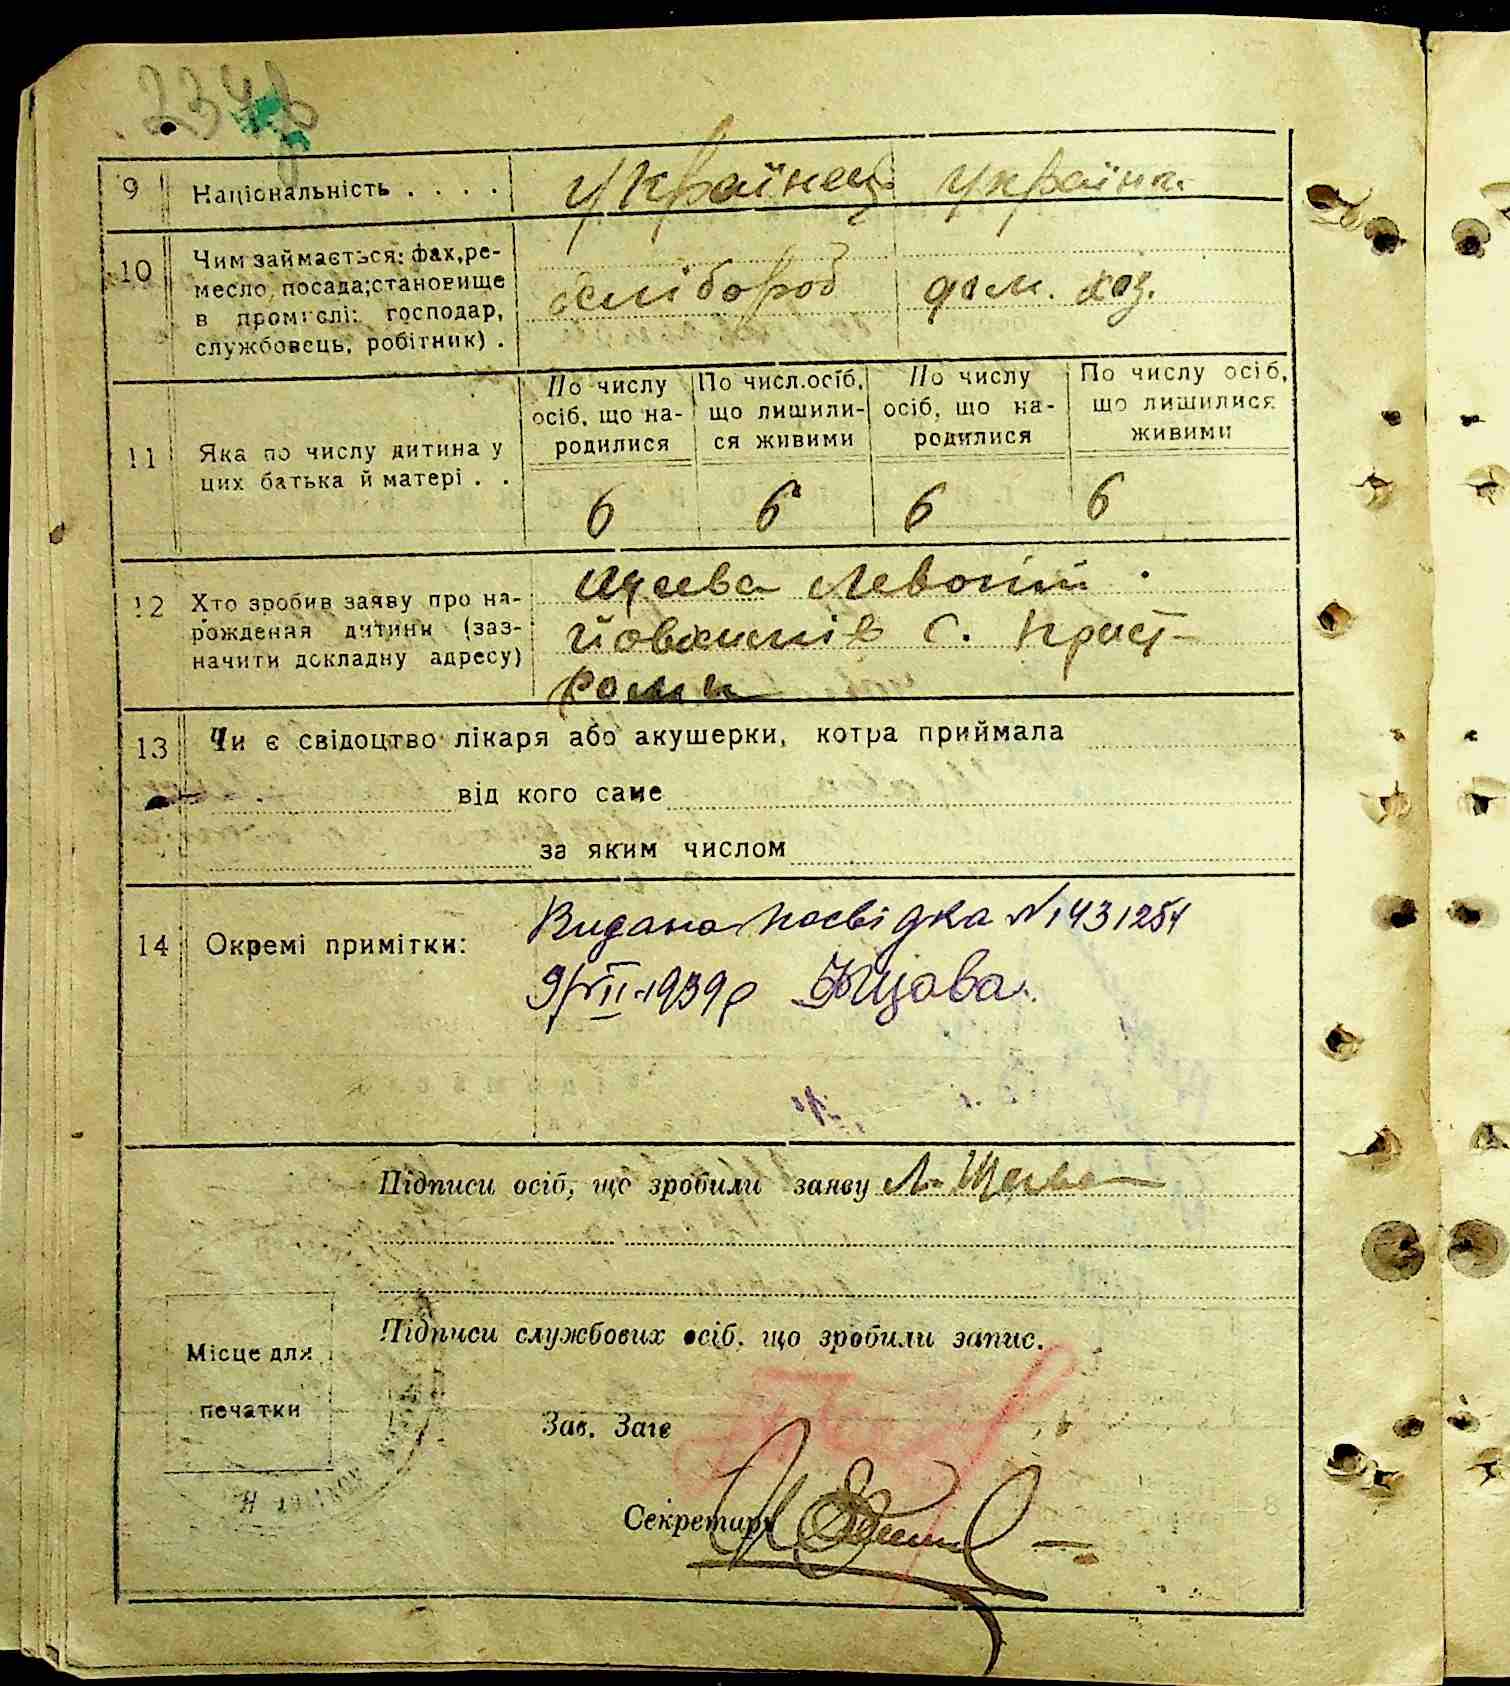 234
9 Національність . . . . Українец Україн.
10 Чим займається: фах, ре-
месло, посада; становище
в промислі: господар,
службовець, робітник) .
хлібороб дом. хоз.
11 Яка по числу дитина у
цих батька й матері . .
По числу осіб, що на-родилися
По числ. осіб, що лишили-ся живими
По числу осіб, що на-родилися
По числу осіб, що лишилися живими
6 6 6 6
12 Хто зробив заяву про на-
рождення дитини (заз-
начити докладну адресу)
Левонтій
с. Прист-
роми
13 Чи є свідоцтво лікаря або акушерки, котра приймала
від кого саме
за яким числом
14 Окремі примітки:
Видана посвідка №1431254
9/VII-1939р
Підписи осіб, що зробили заяву Л.
Підписи службових осіб, що зробили запис.
Місце для
печатки
Зав. Загс
Секретарь